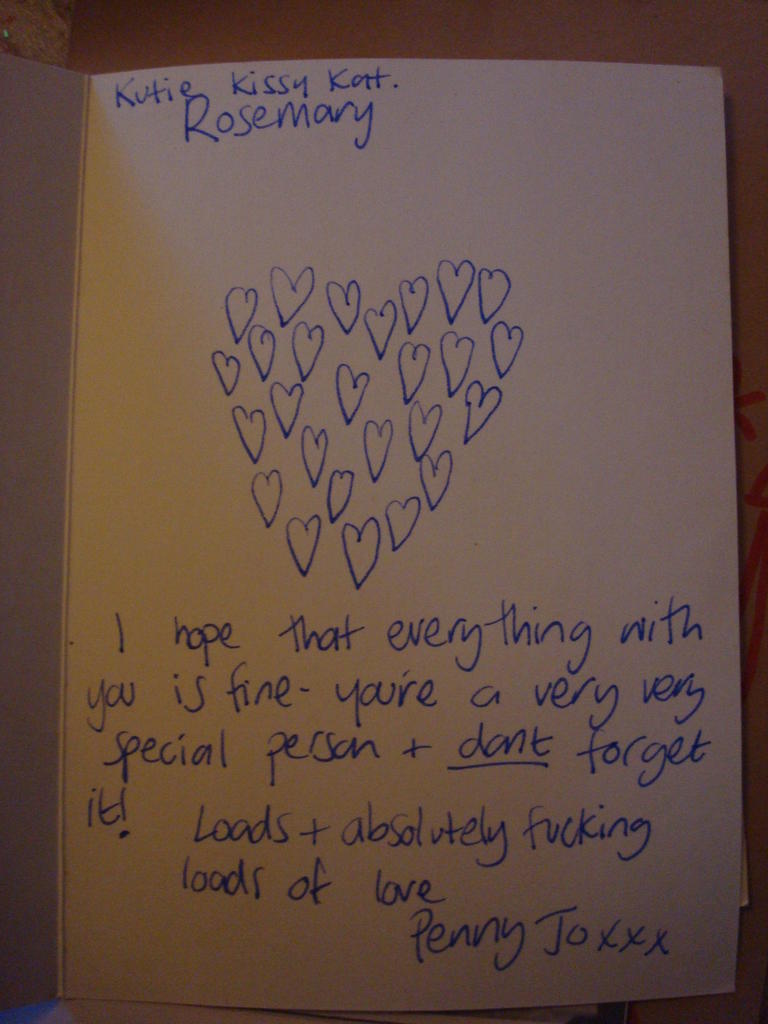 Kutie Kissy Kat.
Rosemary
I hope that everything with
you is fine - you're a very very
special person + dont forget
it!
Loads + absolutely fucking
loads of love
Penny Jo xxx